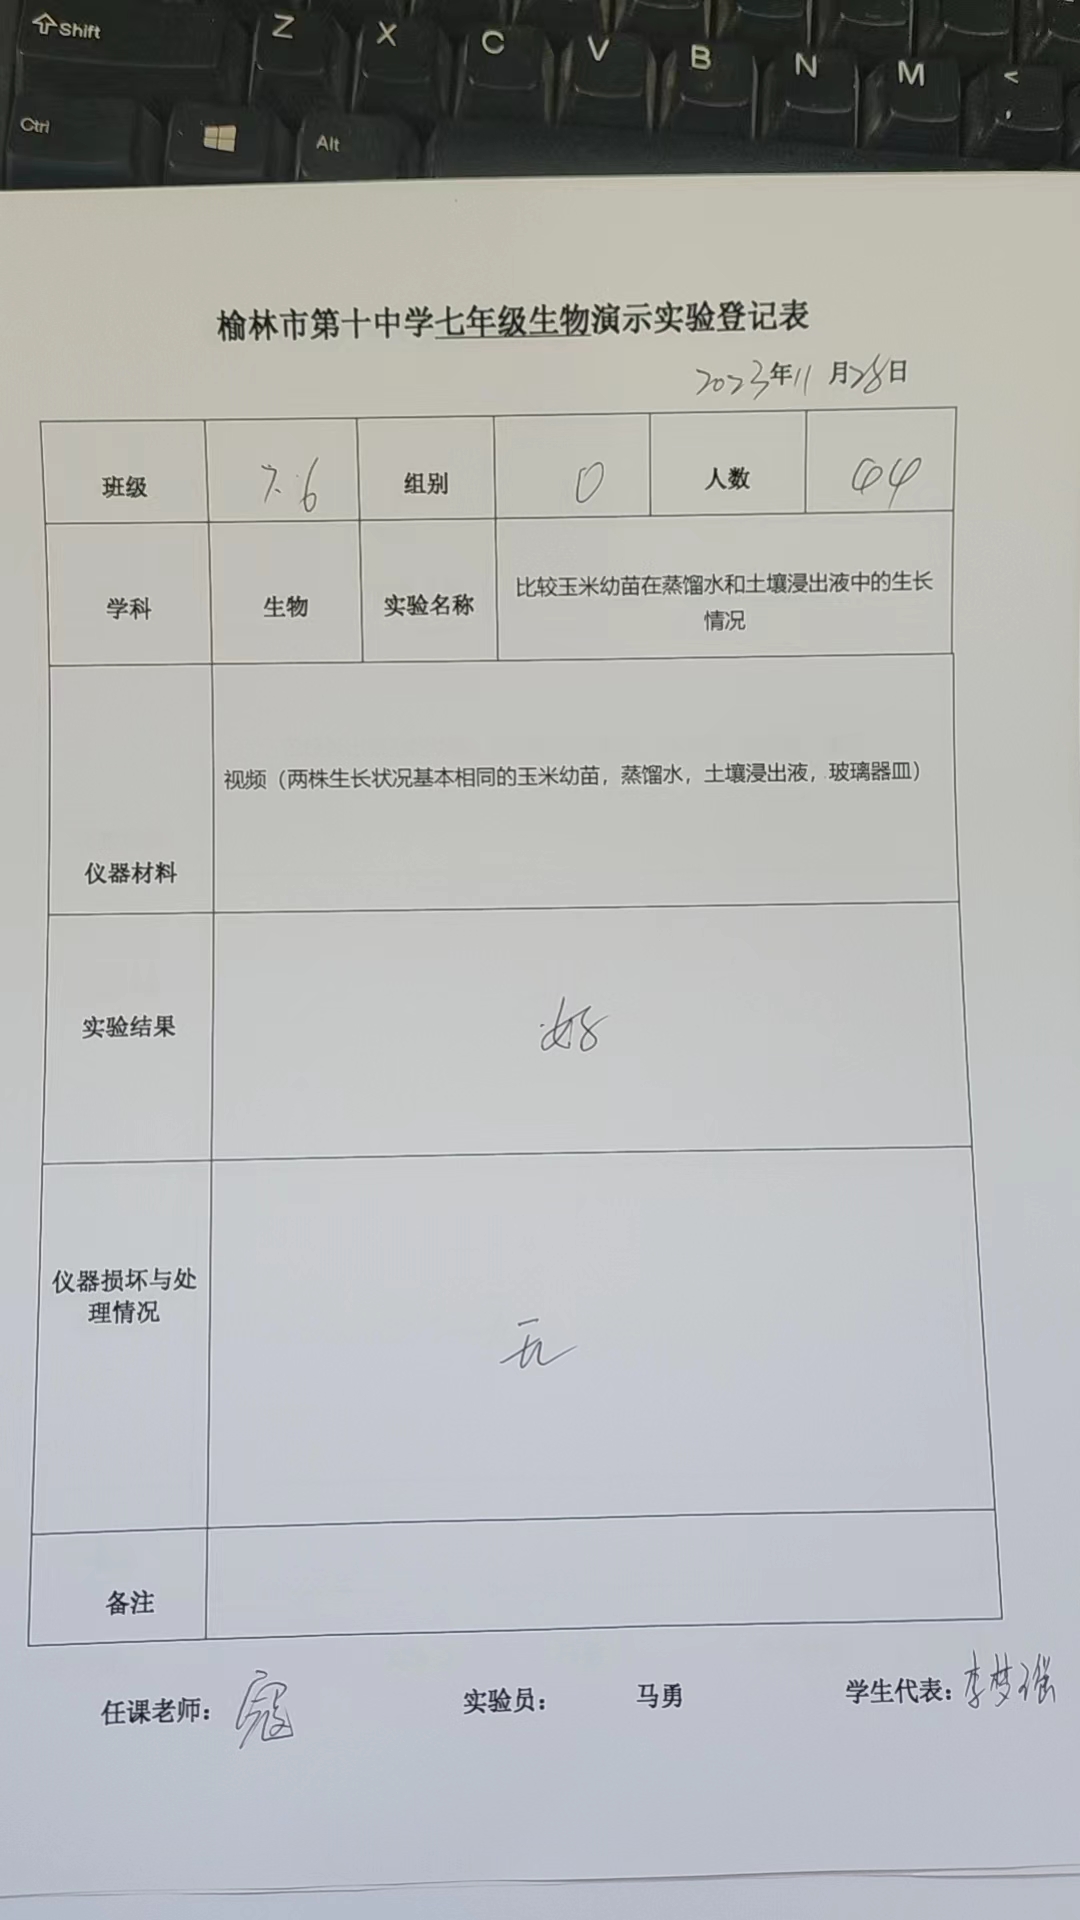 Shift Z X C V B N M <
Ctrl Alt ,
榆林市第十中学七年级生物演示实验登记表
2023年11月28日
班级 7.6 组别 0 人数 44
学科 生物 实验名称 比较玉米幼苗在蒸馏水和土壤浸出液中的生长
情况
视频（两株生长状况基本相同的玉米幼苗，蒸馏水，土壤浸出液，玻璃器皿）
仪器材料
实验结果 好
仪器损坏与处
理情况
无
备注
任课老师：寇 实验员： 马勇 学生代表：李梦瑶